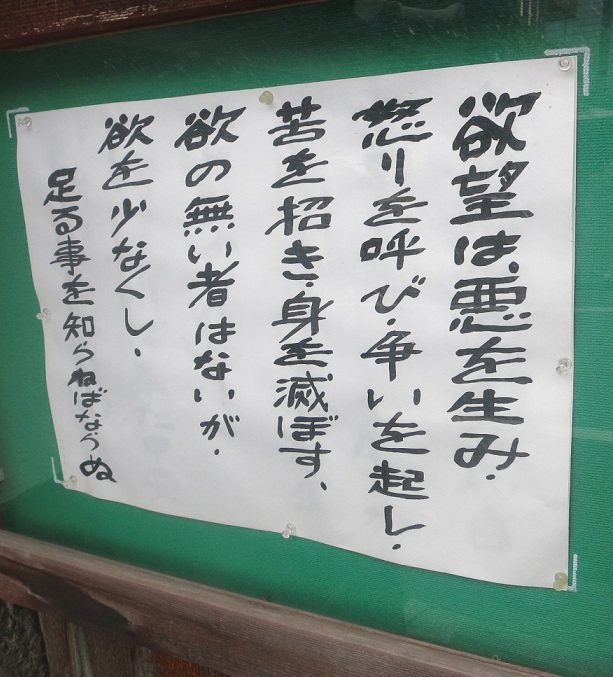 欲望は、悪を生み、
怒りを呼び、争いを起し、
苦を招き、身を滅ぼす、
欲の無い者はないが、
欲を少なくし、
足る事を知らねばならぬ